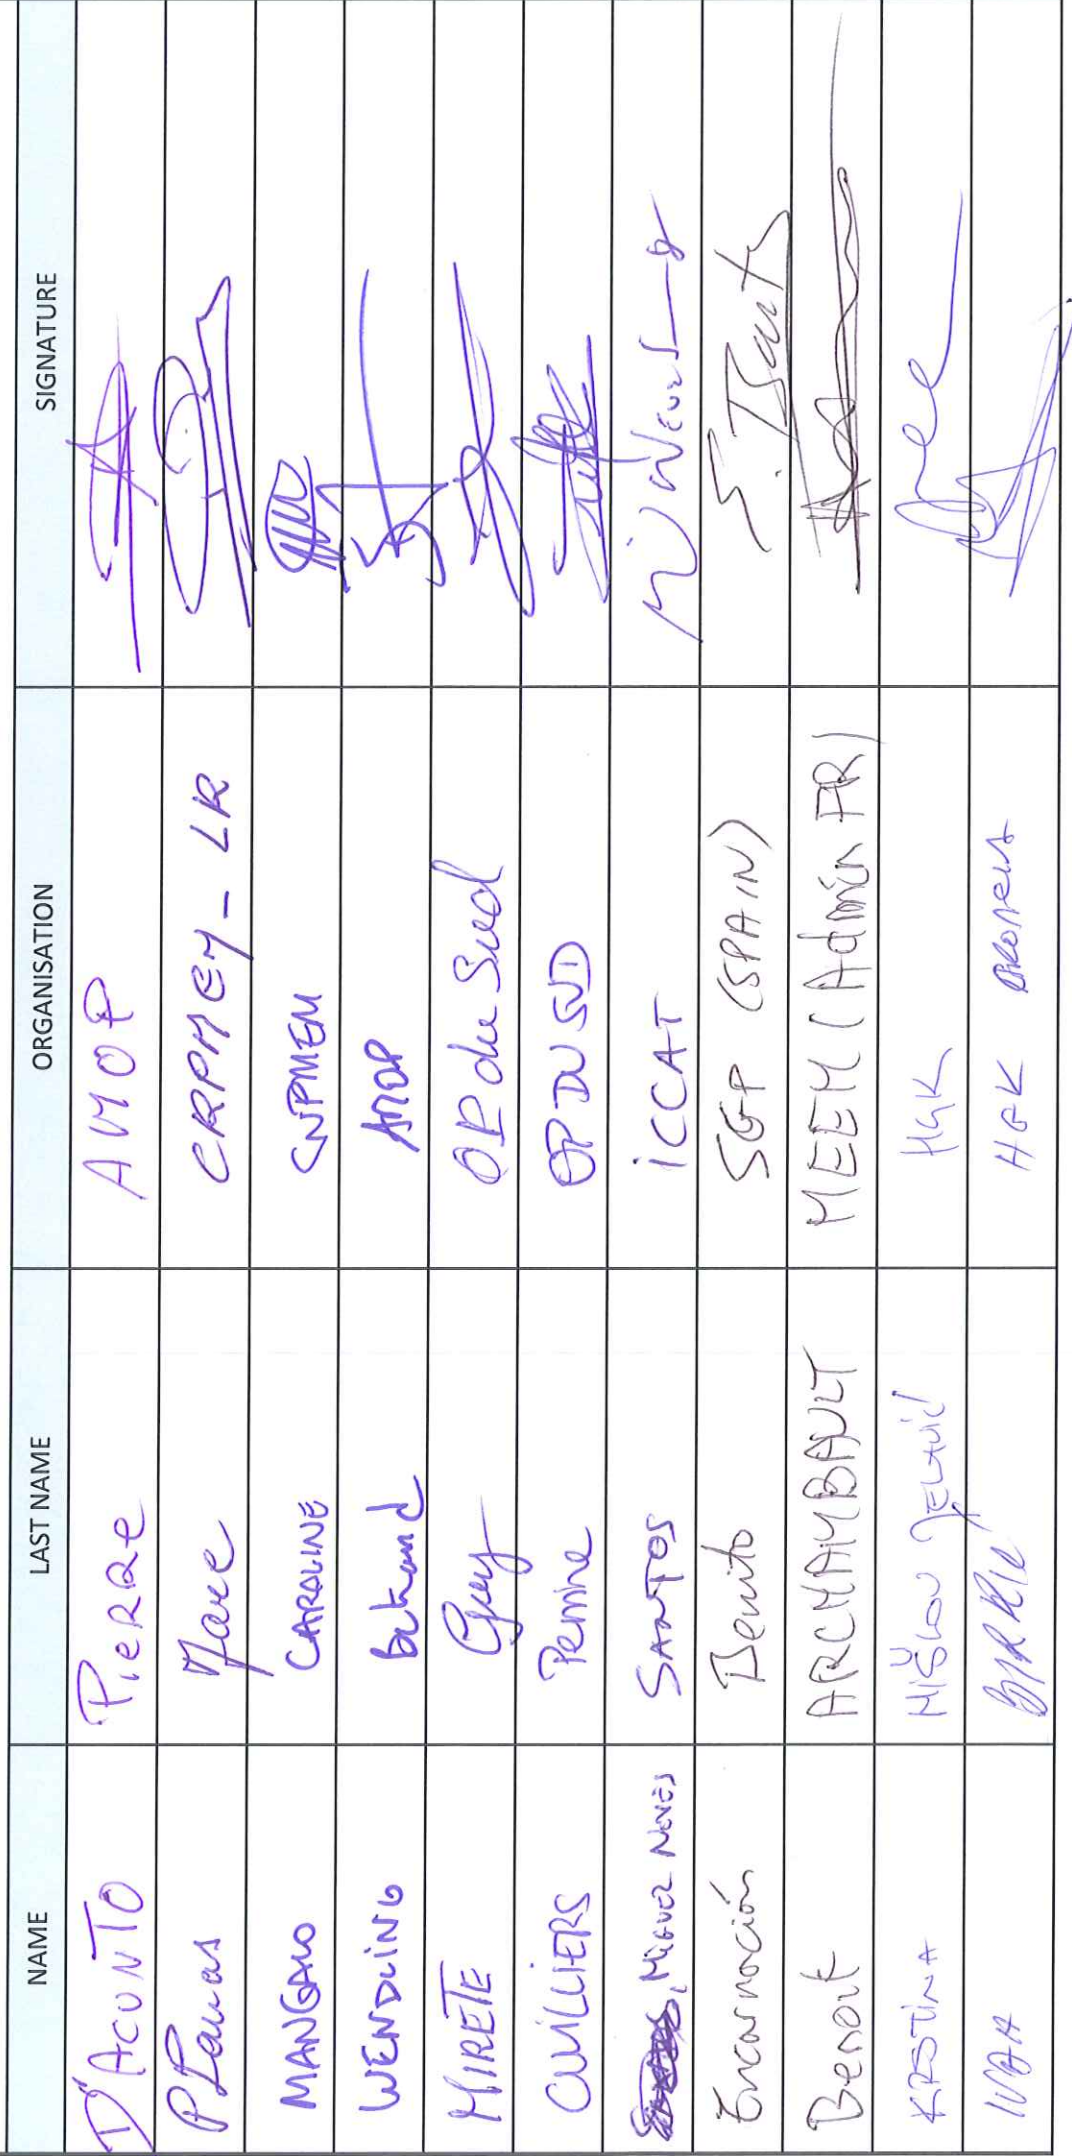 NAME LAST NAME ORGANISATION SIGNATURE
D'ACUNTO PIERRE AMOP
PLanas Marc CRPMEM-LR
MANGALO CAROLINE CNPMEM
WENDLING bertrand AMOP
MIRETE Guy OP du Sud
CUILLIERS Perrine OP DU SUD
MIGUEL NEVES SANTOS iCCAT
Encarnación Benito SGP (SPAIN) E. Benito
Benoit ARCHAMBAULT MEEM (Admin FR)
KRSTINA MIŠLOV JELAVIĆ HGK
IVNA HGK